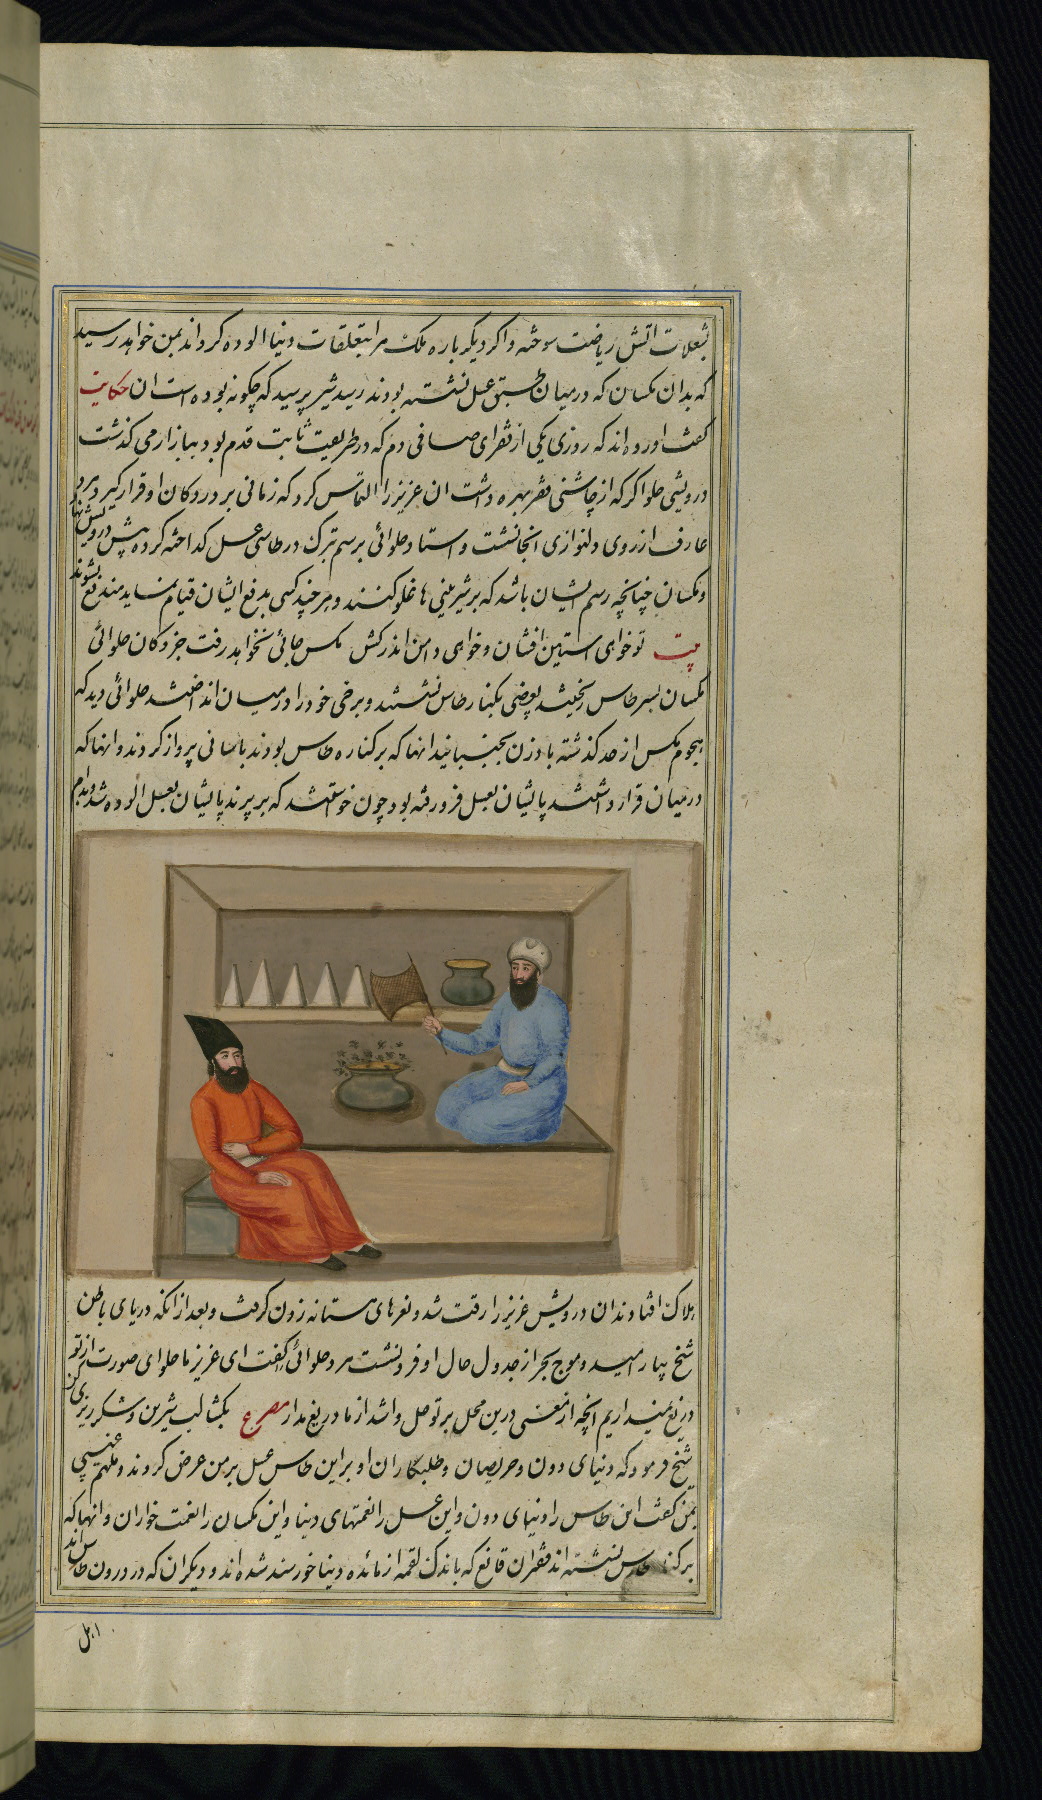 بشعلات اتش ریاضت سوخته و اکر دیکر باره ملک مرا بتعلقات دنیا الوده کرداند بمن خواهد رسید
که بدان مکسان که در میان طبق عسل نشسته بودند رسید شیر پرسید که چکونه بوده است ان حکایت
کفت اورده اند که روزی یکی از فقرای صافی دم که در طریقت ثابت قدم بود ببازار می کذشت
درویشی حلواکر که از چاشنی فقر بهره داشت ان عزیز را التماس کرد که زمانی بر در دکان او قرار کیرد پیر
عارف از روی دلنوازی انجا نشست و استاد حلوائی برسم تبرک در طاسی عسل کداخته کرده پیش درویش نهاد
و مکسان چنانچه رسم ایشان باشد که بر شیرینی ها غلو کنند و هر چند کسی بدفع ایشان قیام نماید مندفع نشوند
بیت تو خواهی استین افشان و خواهی دامن اندر کش مکس جائی نخواهد رفت جز دکان حلوائی
مکسان بسر طاس ریختند بعضی بکنار طاس نشستند و برخی خود را در میان انداختند حلوائی دید که
هجوم مکس از حد کذشته بادزن بجنبانید انها که بر کناره طاس بودند باسانی پرواز کردند و انها که
در میان قرار داشتند پایشان بعسل فرو رفته بود چون خواستند که بر پرند پایشان بعسل الوده شد و بدام
هلاک افتادند ان درویش عزیز را رقت شد و نعرهای مستانه زدن کرفت و بعد از انکه دریای باطن
شیخ بیارامید و موج بحر از جدول حال او فرو نشست مرد حلوائی کفت ای عزیز ما حلوای صورت از تو
دریغ نمیداریم انچه از معنی درین محل بر تو حل واشد از ما دریغ مدار مصرع بکشا لب شیرین و شکر ریزی کن
شیخ فرمود که دنیای دون و حریصان و طلبکاران او بر این طاس عسل بر من عرض کردند و ملهم غیبی
بمن کفت این طاس را دنیای دون و این عسل را نعمتهای دنیا و این مکسان را نعمت خواران و انها که
بر کنار طاس نشسته اند فقیران قانع که باندک لقمه از مائده دنیا خورسند شده اند و دیکران که در درون طاس اند
اهل